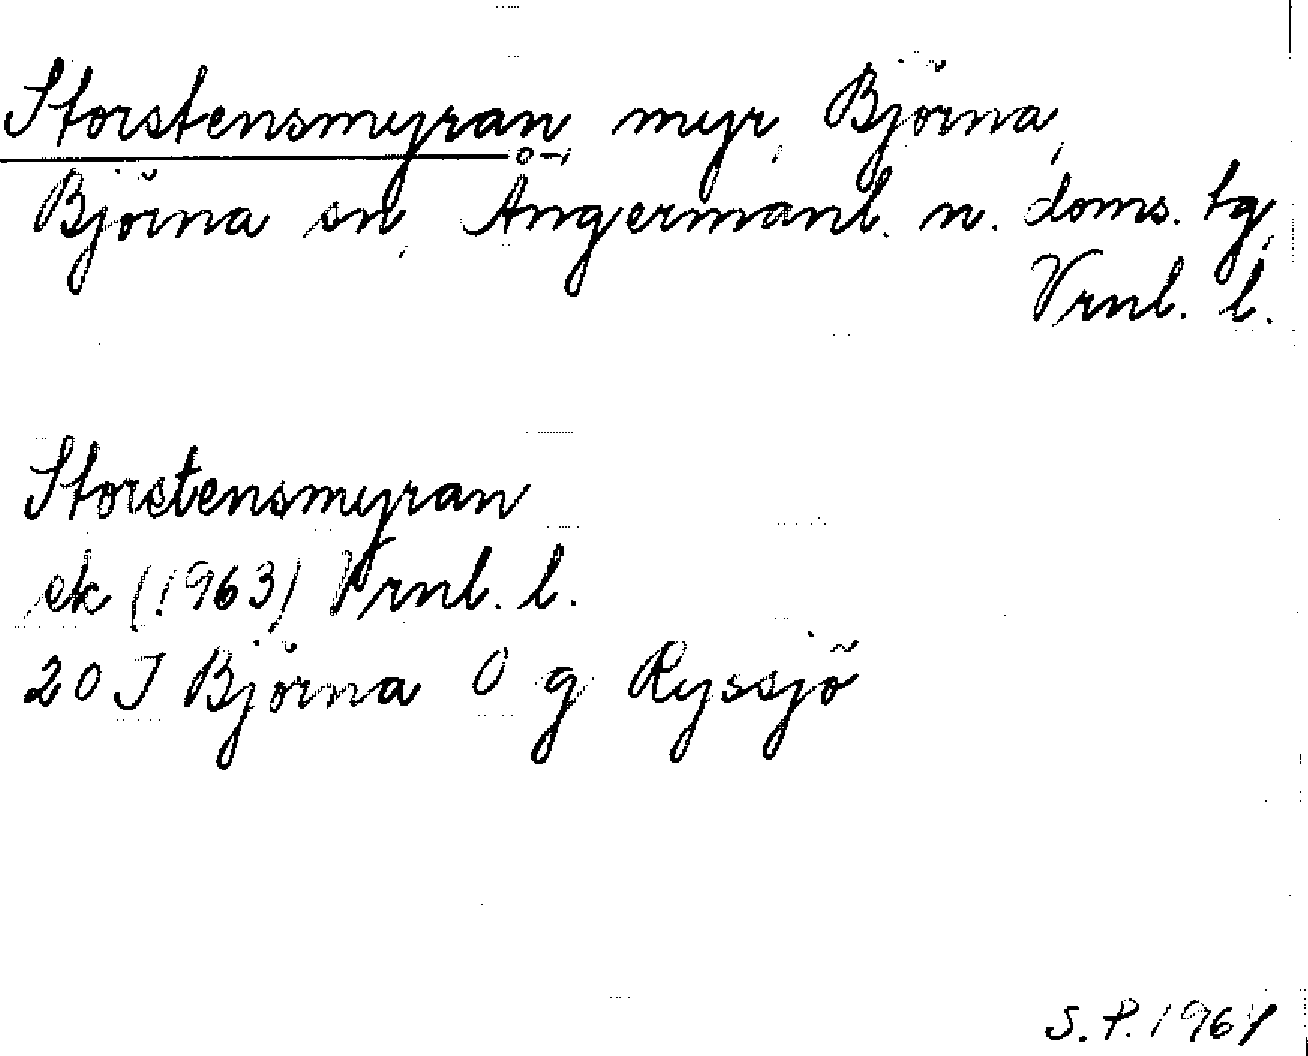 Storstensmyran, myr, Björna,
Björna sn, Ångermanl. n. doms. tg,
Vrnl. l.
Storstensmyran
ek (1963) Vrnl. l.
20 J Björna 0 g Ryssjö
S. P. 1967